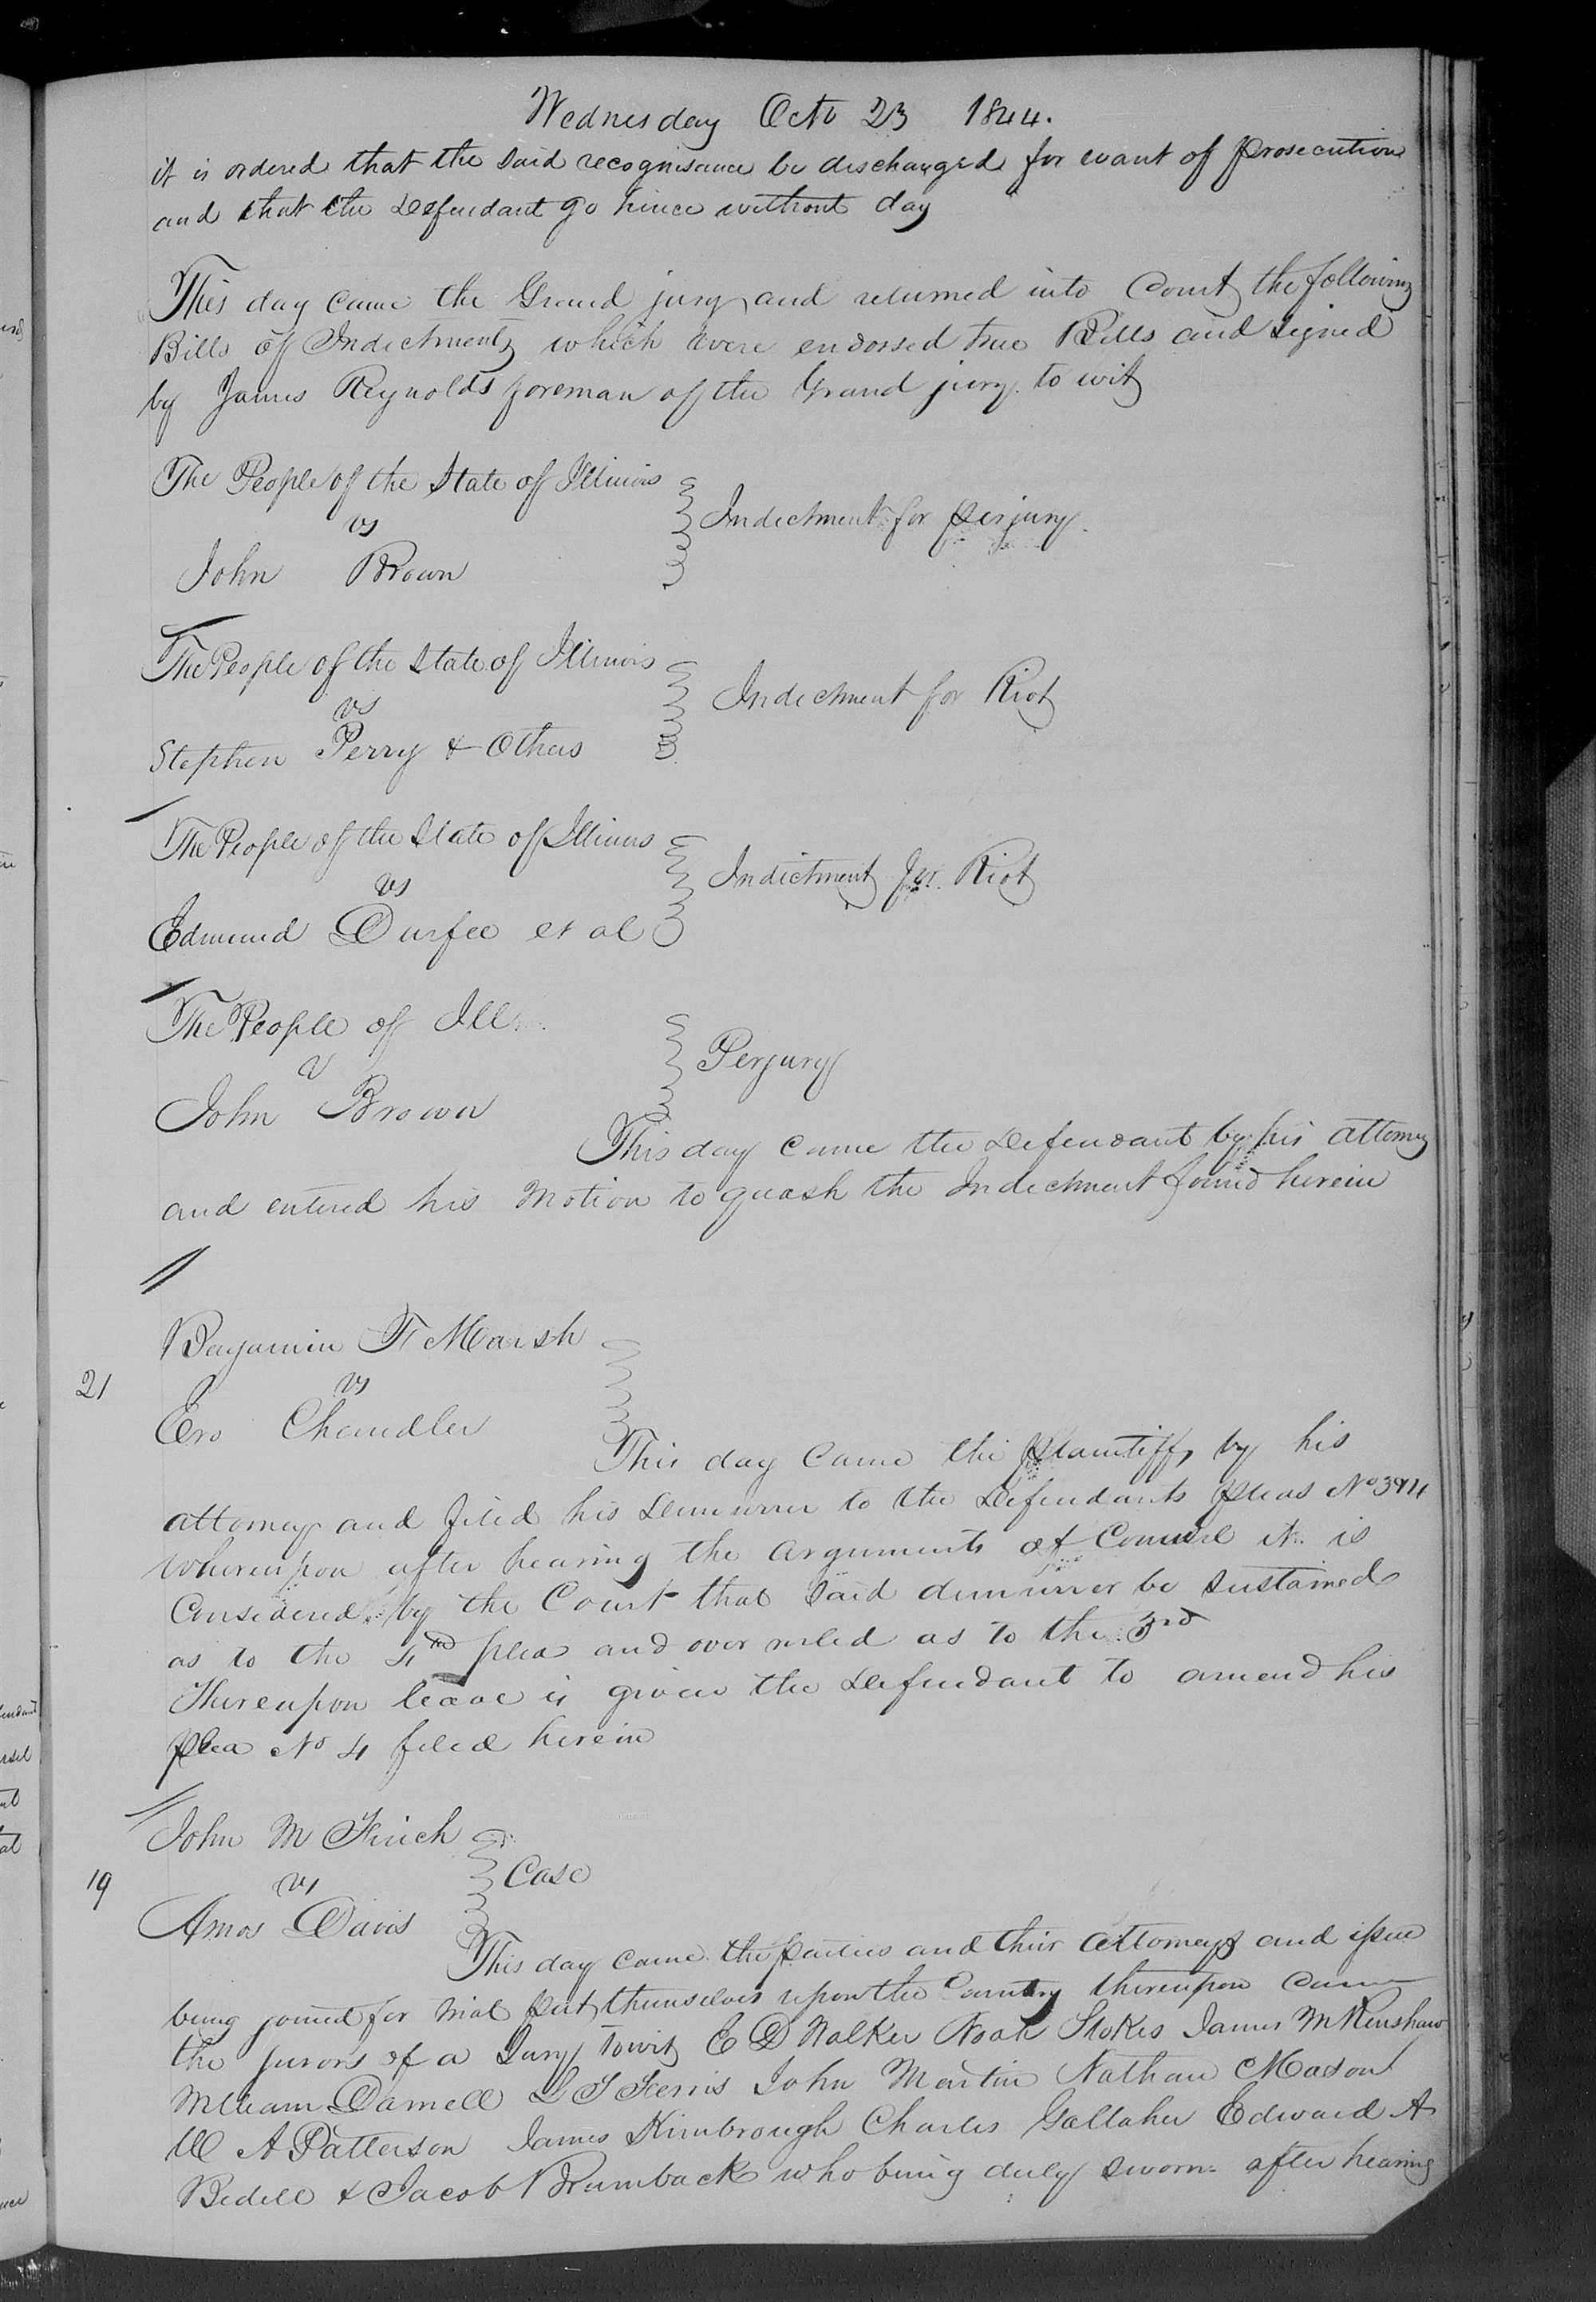 Wednesday Octo 23 1844.
it is ordered that the said recognisance be discharged for want of prosecution
and that the Defendant go hence without day
This day came the Grand jury and returned into Court the following
Bills of Indictments which were endorsed true Bills and signed
by James Reynolds foreman of the Grand jury to wit
The People of the State of Illinois
vs
Indictment for perjury.
John Brown
The People of the State of Illinois
vs
Indictment for Riot
Stephen Perry & Others
The People of the State of Illinois
vs
Indictment for Riot
Edmund Durfee et al
The People of Ill
v
Perjury
John Brown
This day came the Defendant by his attorney
and entered his Motion to quash the Indictment found herein
Benjamin F Marsh
21 vs
Chandler
This day came the plaintiff, by his
attorney and filed his Demurrer to the Defendants pleas No 3 & 4
Whereupon after hearing the arguments of Counsel it is
Considered by the Court that said demurrer be sustained
as to the 4 plea and over ruled as to the 3rd
Thereupon leave is given the Defendant to amend his
plea No 4 filed herein
John M Finch
19 vs
Case
Amos Davis
This day came the parties and their attorneys and issue
being joined for trial put themselves upon the Country thereupon came
the jurors of a Jury towit E D Walker Noah Stokes James M Renshaw
William Darnell L T Ferris John Martin Nathan Mason
A Patterson James Kimbrough Charles Gallaher Edward A
Bedell & Jacob Brumback who being duly sworn after hearing